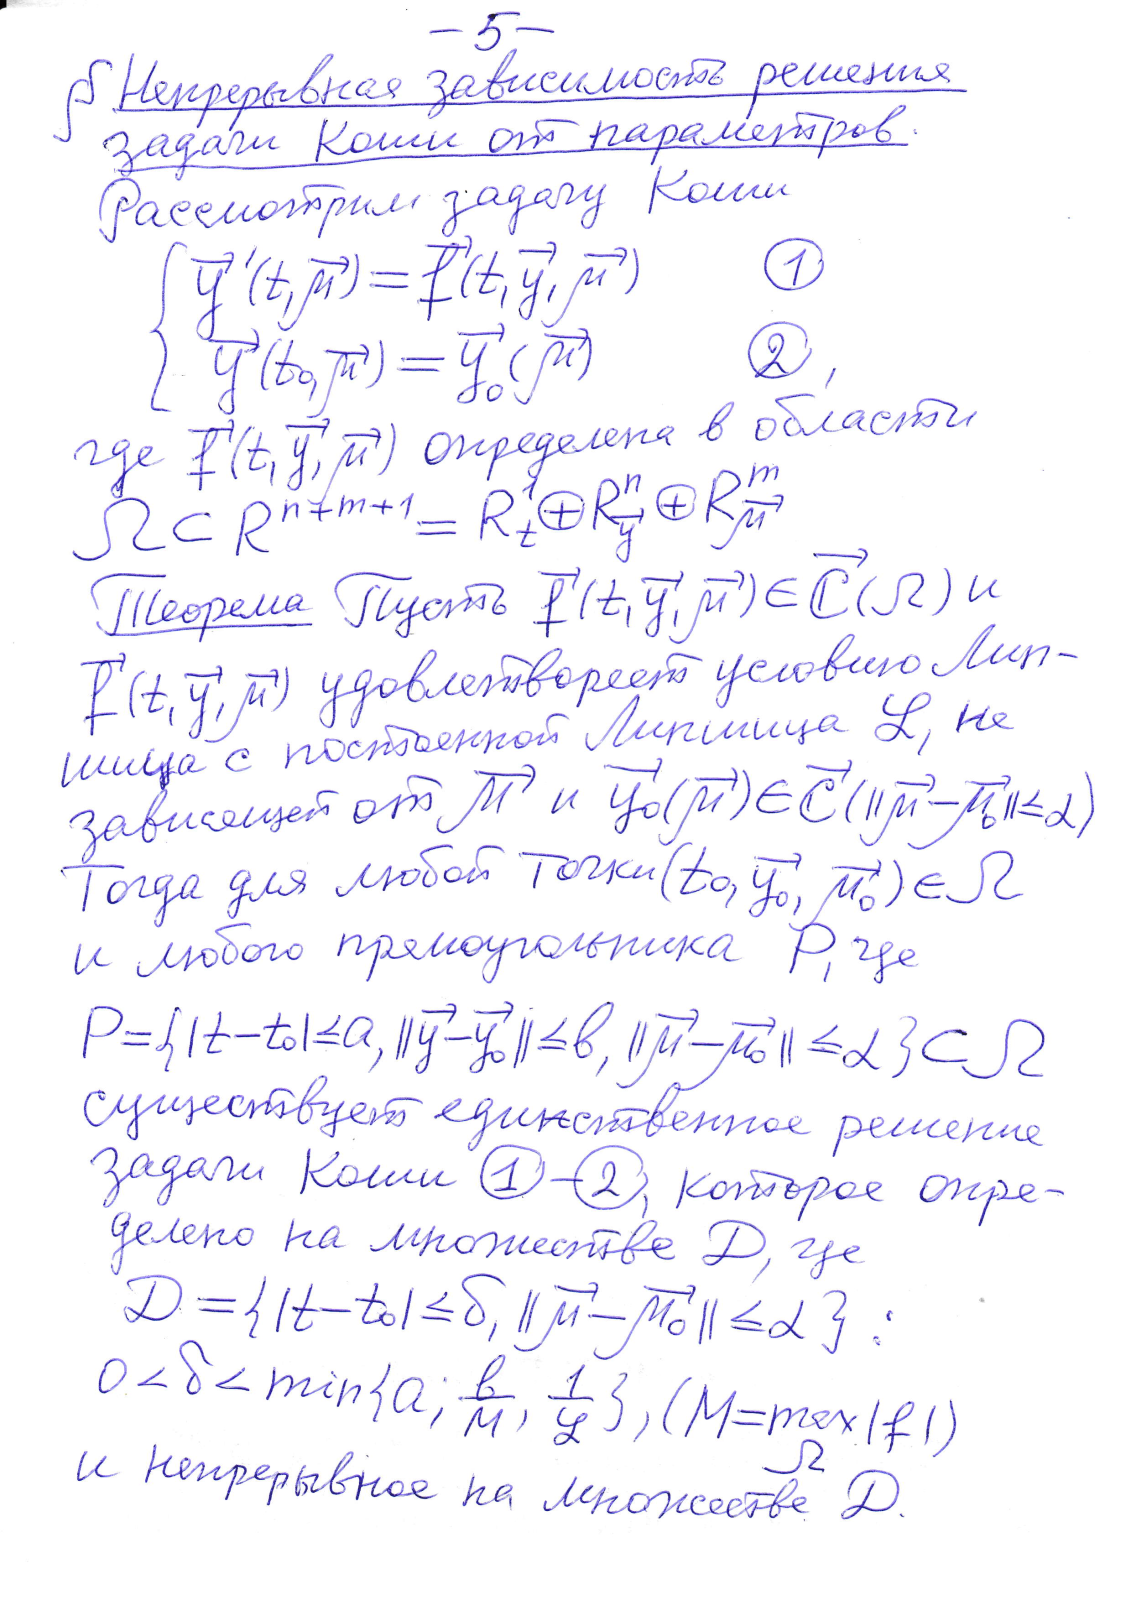 – 5 –
§ Непрерывная зависимость решения
задачи Коши от параметров.
Рассмотрим задачу Коши
{ y⃗ ′(t, μ⃗) = f⃗(t, y⃗, μ⃗) ①
y⃗(t₀, μ⃗) = y⃗₀(μ⃗) ②,
где f⃗(t, y⃗, μ⃗) определена в области
Ω ⊂ R^{n+m+1} = R^1_t ⊕ R^n_{y⃗} ⊕ R^m_{μ⃗}
Теорема Пусть f⃗(t, y⃗, μ⃗) ∈ C⃗(Ω) и
f⃗(t, y⃗, μ⃗) удовлетворяет условию Лип-
шица с постоянной Липшица L, не
зависящей от μ⃗ и y⃗₀(μ⃗) ∈ C⃗(||μ⃗ – μ⃗₀|| ≤ α)
Тогда для любой точки (t₀, y⃗₀, μ⃗₀) ∈ Ω
и любого прямоугольника P, где
P = {|t – t₀| ≤ a, ||y⃗ – y⃗₀|| ≤ в, ||μ⃗ – μ⃗₀|| ≤ α} ⊂ Ω
существует единственное решение
задачи Коши ① – ②, которое опре-
делено на множестве D, где
D = {|t – t₀| ≤ δ, ||μ⃗ – μ⃗₀|| ≤ α} :
0 < δ < min{a; в/M, 1/L}, (M = max_Ω |f|)
и непрерывное на множестве D.